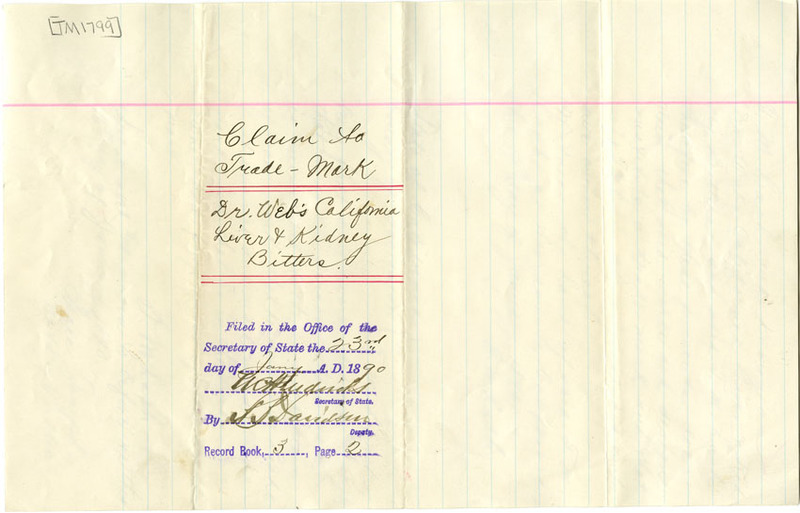 [TM1799]
Claim to
Trade-Mark
Dr. Web's California
Liver & Kidney
Bitters.
Filed in the Office of the
Secretary of State the 23rd
day of Jany A. D. 1890
W C Hendricks
Secretary of State.
By S. J. Davidson
Deputy.
Record Book, 3, Page 2